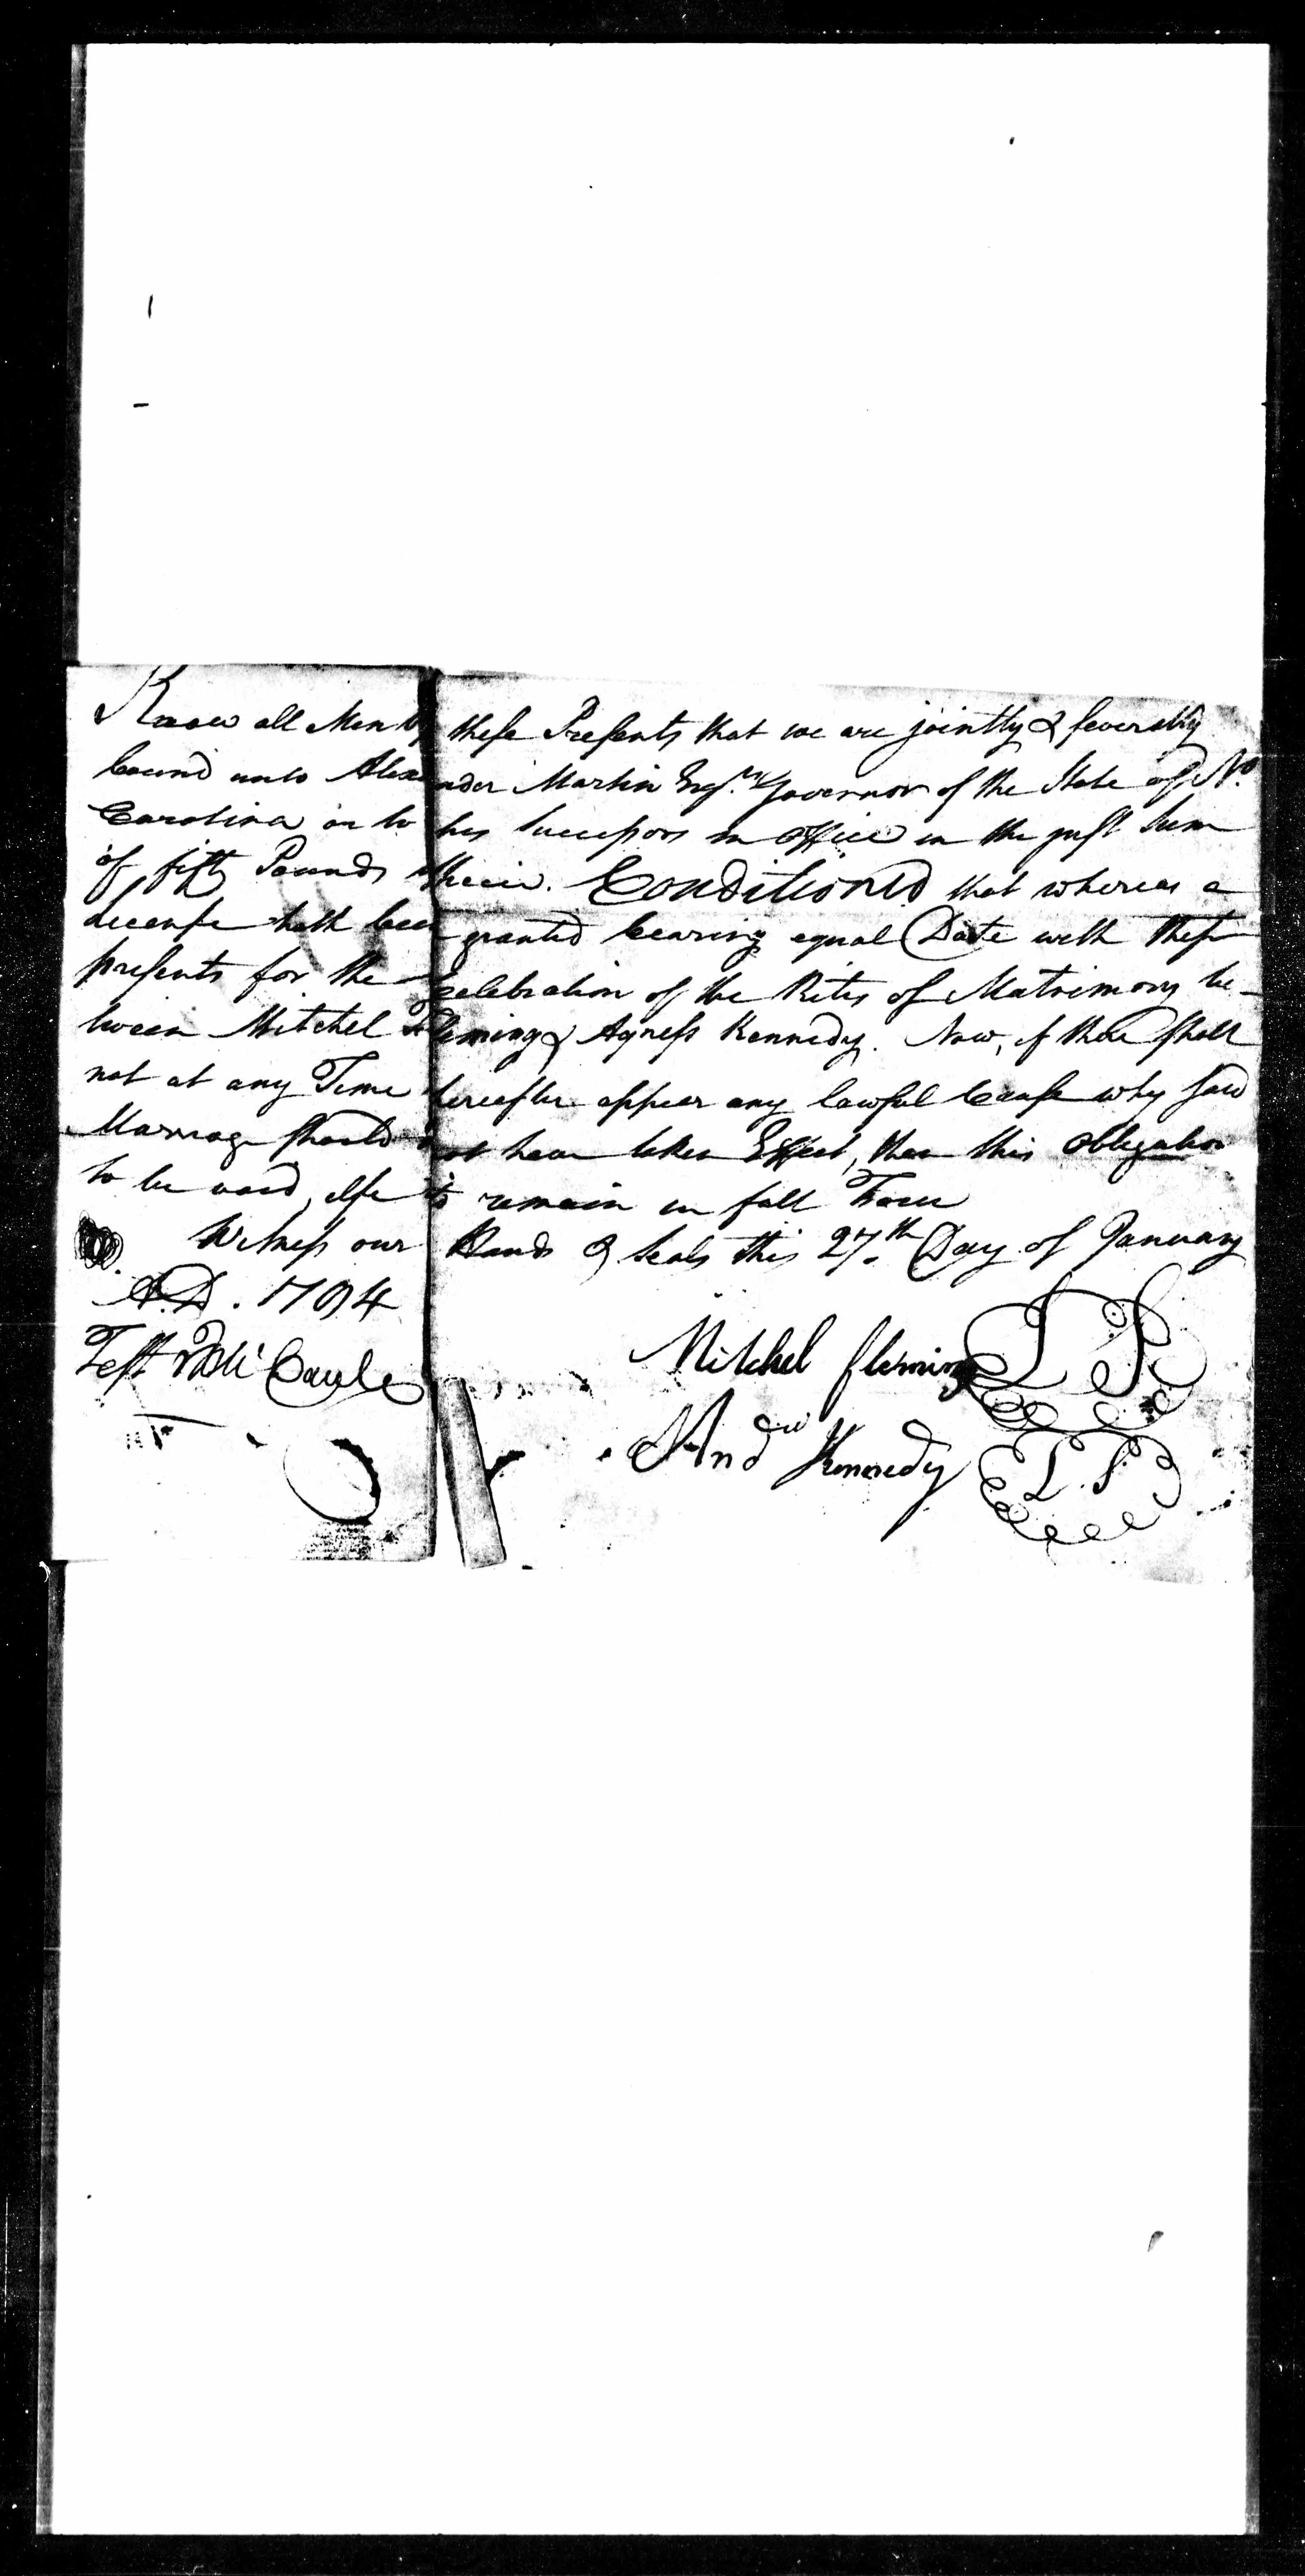 Know all Men by these Presents that we are jointly & severally
bound unto Alexander Martin Esqr. Governor of the State of No.
Carolina or to his Successors in office in the just Sum
of fifty Pounds Specie. Conditioned that whereas a
License hath been granted bearing equal Date with these
presents for the Celebration of the Rites of Matrimony be-
tween Mitchel Fleming & Agness Kennedy. Now, if there shall
not at any Time hereafter appear any lawful Cause why said
Marriage should not have taken Effect, then this obligation
to be void, else to remain in full Force
Witness our Hands & Seals this 27th. Day of January
A.D. 1794
Test Caule
Mitchel fleming L S
Andw Kennedy L.S.